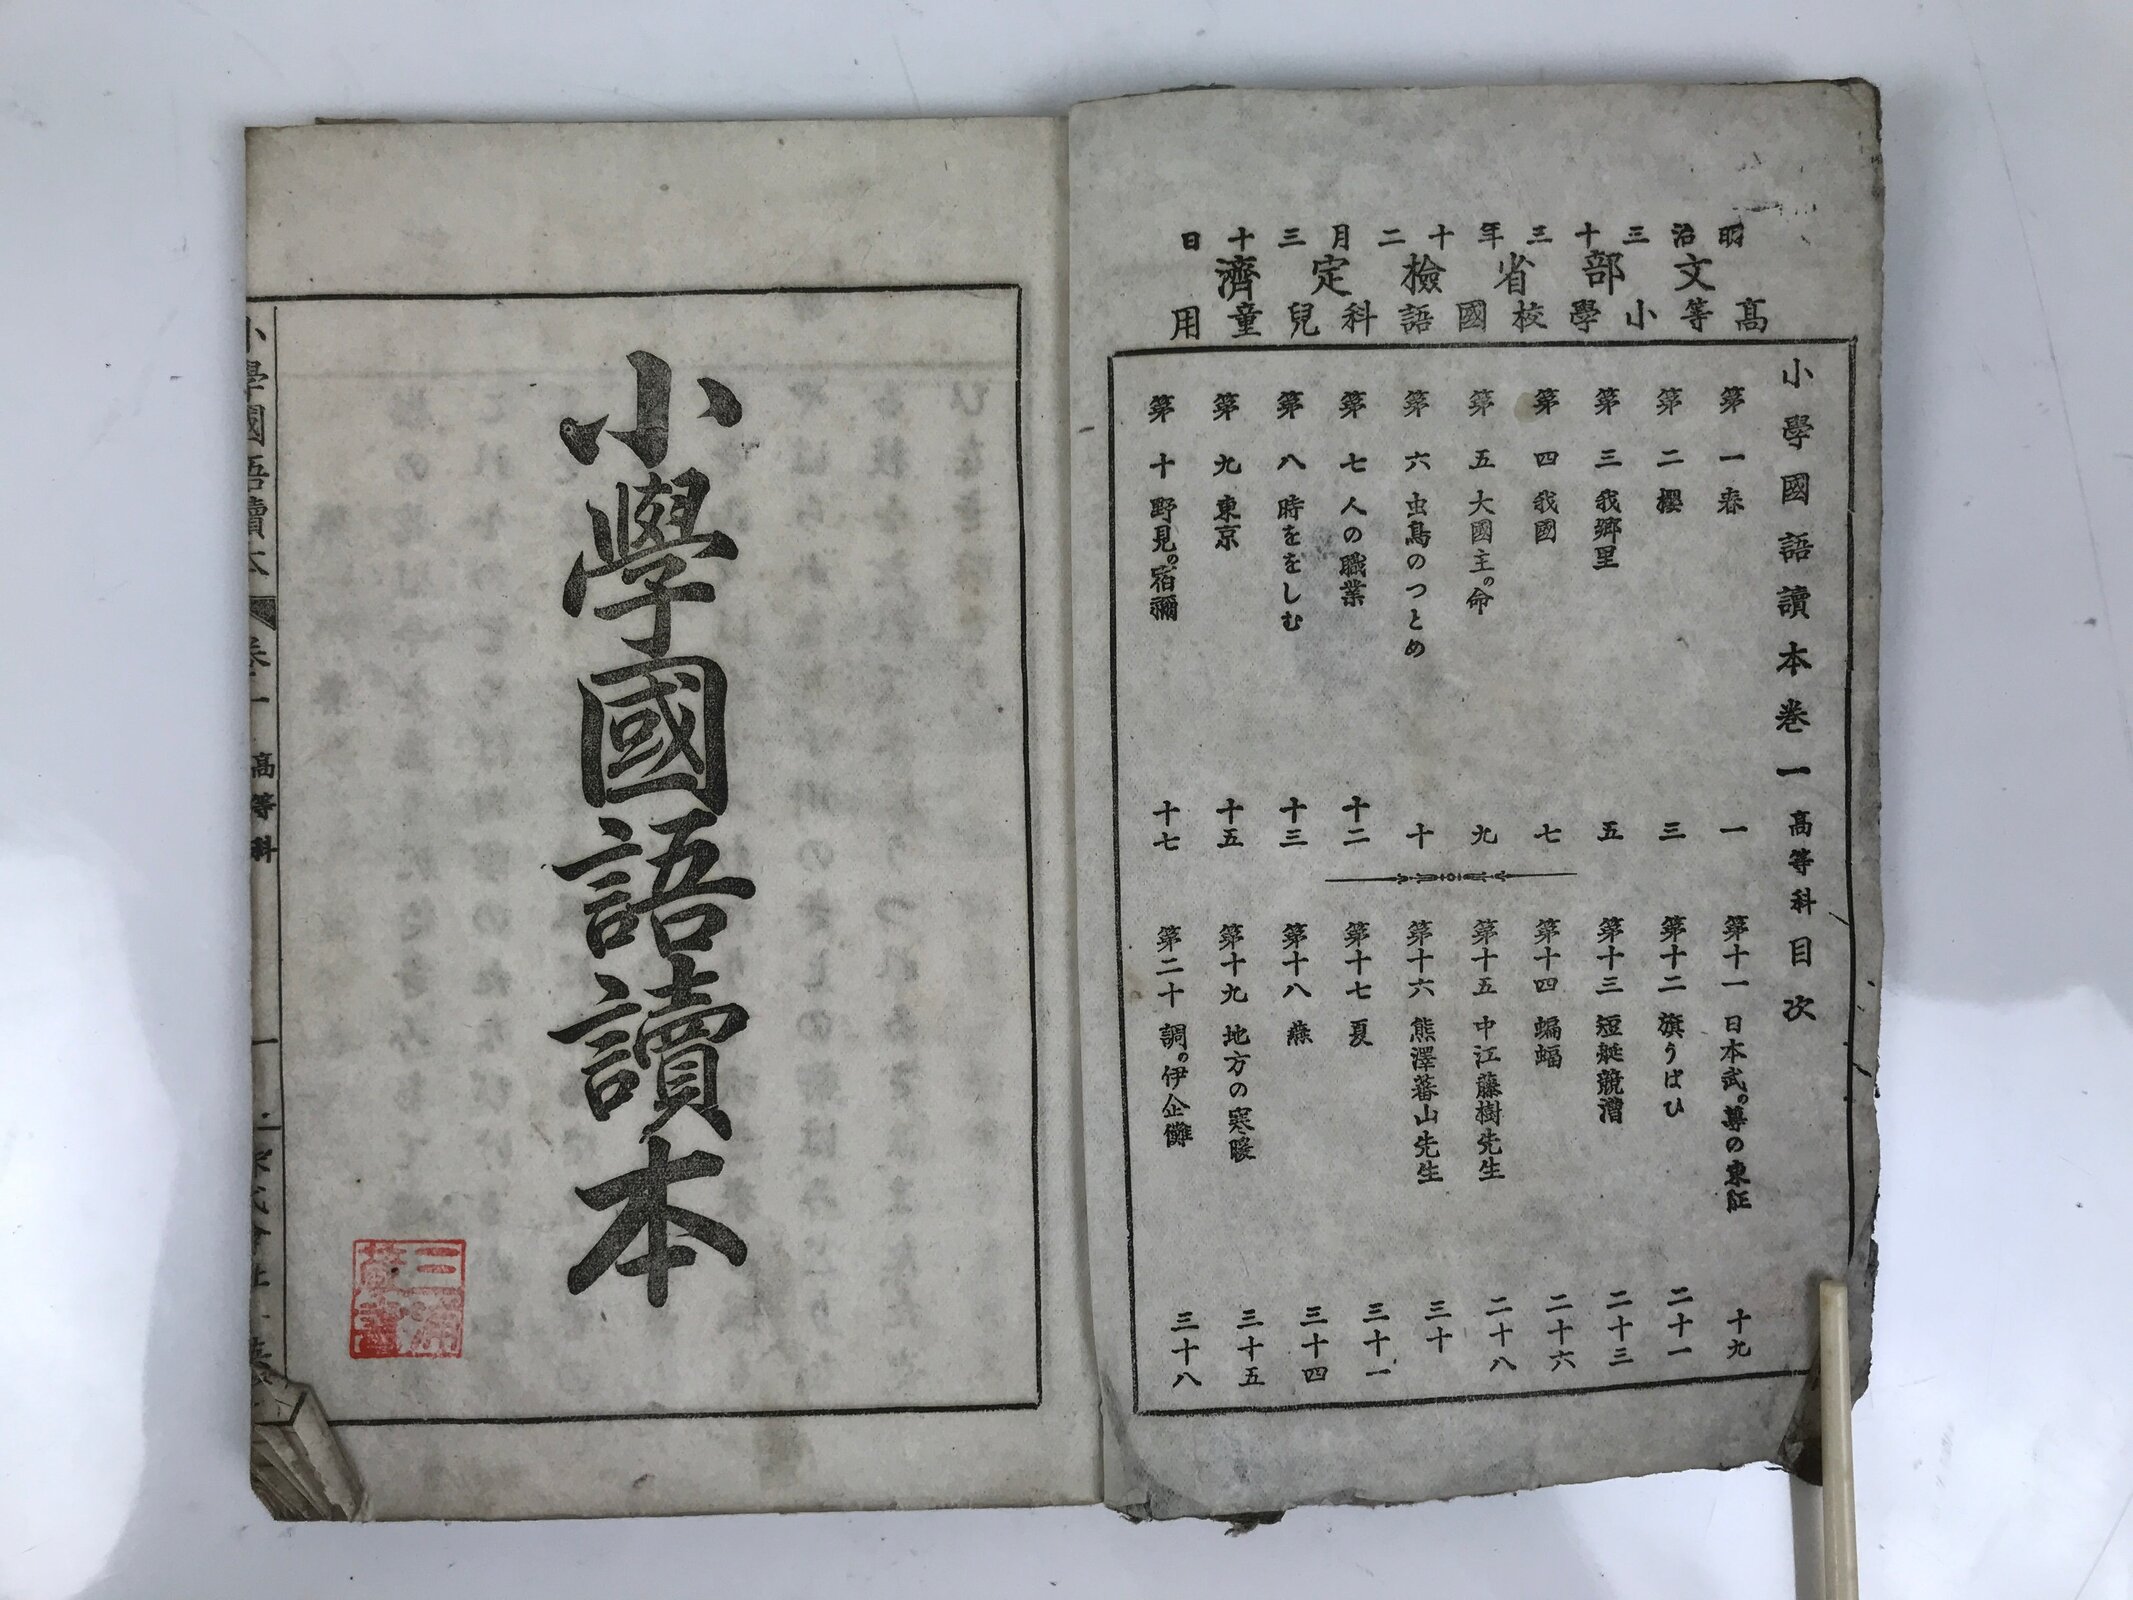 明治三十三年十二月三十日
文部省檢定濟
高等小學校國語科兒童用
小學國語讀本卷一高等科目次
第一春 一
第二櫻 三
第三我鄉里 五
第四我國 七
第五大國主。命 九
第六虫鳥のつとめ 十
第七人の職業 十二
第八時ををしむ 十三
第九東京 十五
第十野見。宿禰 十七
第十一日本武。尊の東征 十九
第十二旗うばひ 二十一
第十三短艇競漕 二十三
第十四蝙蝠 二十六
第十五中江藤樹先生 二十八
第十六熊澤蕃山先生 三十
第十七夏 三十一
第十八燕 三十四
第十九地方の寒暖 三十五
第二十調。伊企儺 三十八
小學國語讀本
三浦藏書
小學國語讀本 卷一 高等科 一